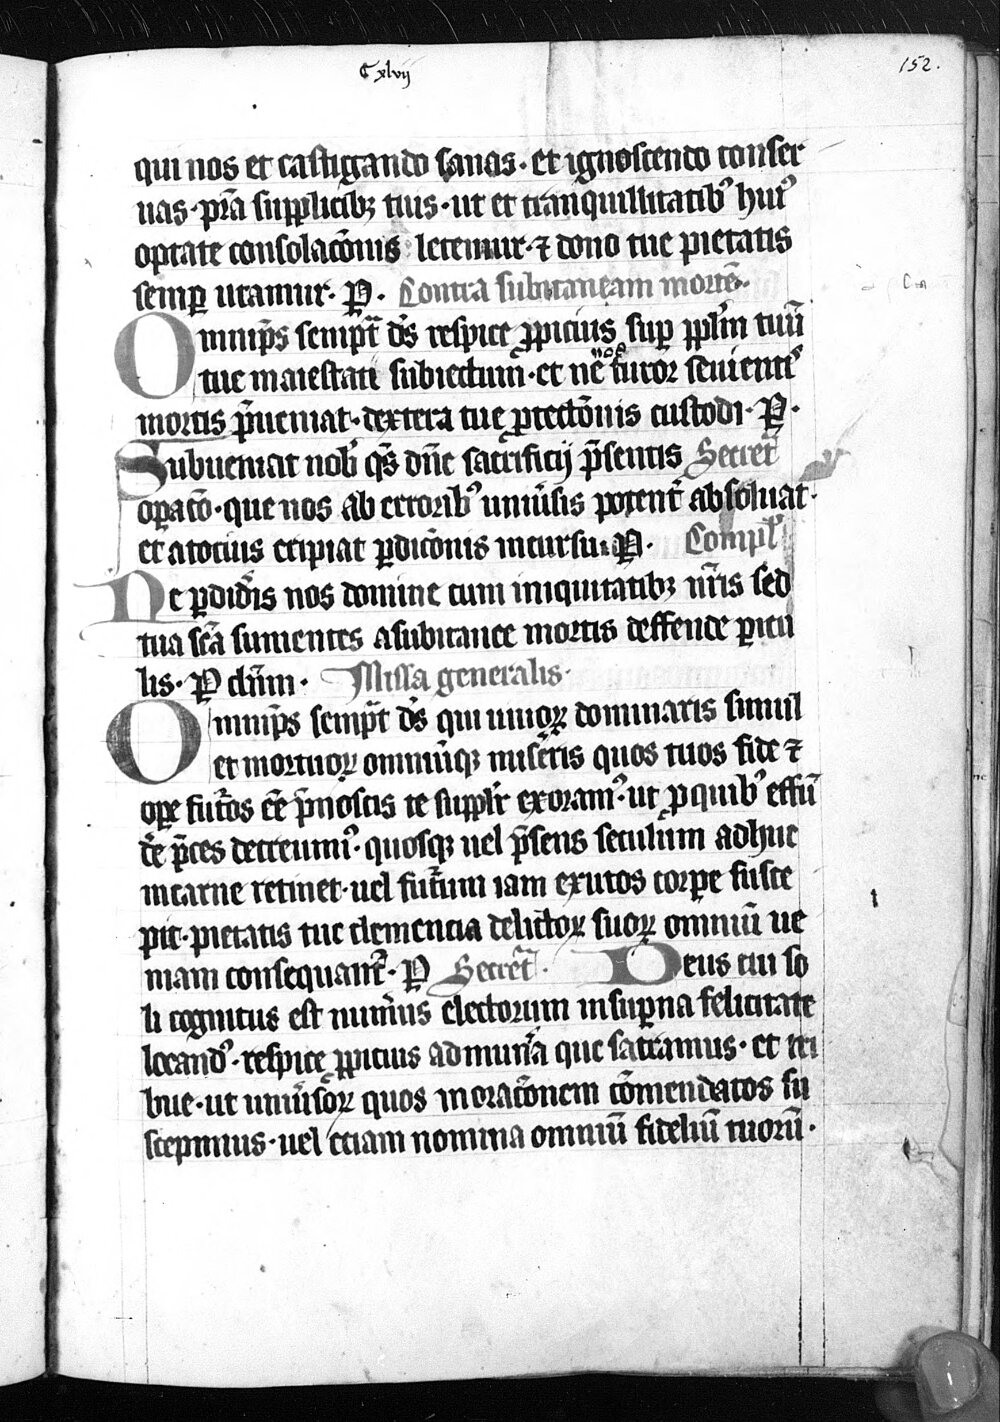 C xlvij
152.
qui nos et castigando sanas · et ignoscendo conser
uas · p̄ra supplicibꝫ tuis · ut et tranquillitatibꝰ huiꝰ
optate consolacōnis letemur · ⁊ dono tue pietatis
semꝑ utamur · P · Contra subitaneam mortē ·
Omnip̄s sempt̄ ds̄ respice ꝓpicius suꝑ pplm̄ tuū
tue maiestati subiectum · et ne nos furor seuientꝭ
mortis p̄ueniat · dextera tue ꝓtectōnis custodi · P ·
Subueniat nob̄ qs̄ dn̄e sacrificij p̄sentis Secret̄
oꝑatō · que nos ab erroribꝰ uniūsis potent̄ absoluat ·
et atocius eripiat ꝑdicōnis incursu · P · Compl̄
Ne ꝑdid̄is nos domine cum iniquitatibꝫ nr̄is sed
tua sc̄a sumentes asubitanee mortis deffende ꝑicu
lis · P dūm · Missa generalis ·
Omnip̄s sempt̄ ds̄ qui uiuoꝝ dominaris simul
et mortuoꝝ omniūqꝫ misēris quos tuos fide ⁊
oꝑe futōs ēe p̄noscis te supplr̄ exoramꝰ · ut ꝓ quibꝰ effū
de p̄ces decreuimꝰ · quosqꝫ uel p̄sens seculum adhuc
incarne retinet · uel futūm iam exutos corꝑe susce
pit · pietatis tue clemencia delictoꝝ suoꝝ omniū ue
niam consequant̄ · P Secret̄ · Deus cui so
li cognitus est num̄us electorum insuꝑna felicitate
locandꝰ · respice ꝓpicius ad mun̄a que sacramus · et tri
bue · ut uniūsoꝝ quos in oracōnem cōmendatos su
scepimus · uel eciam nomina omniū fideliū tuorū ·